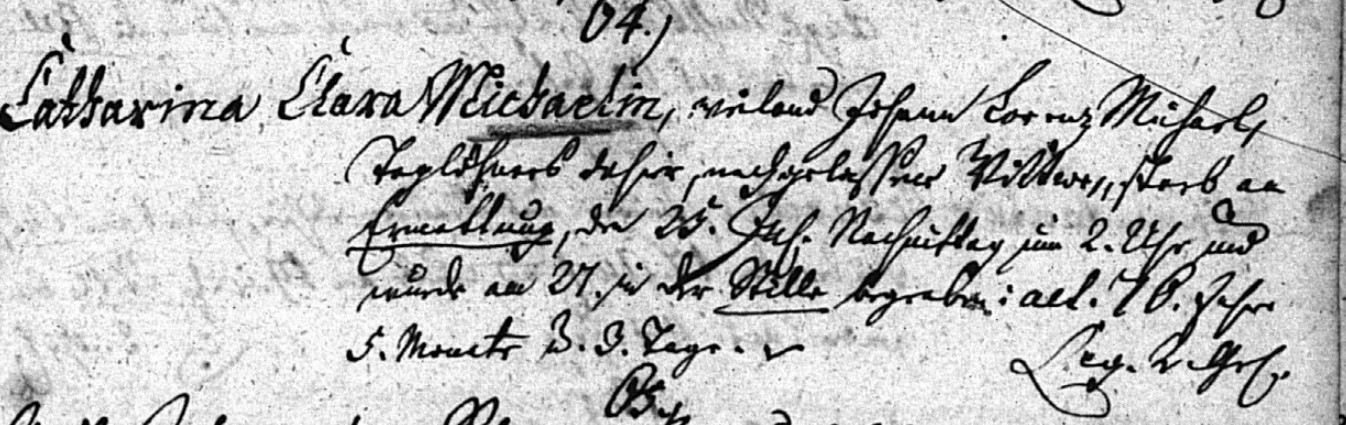 64.)
Catharina Clara Michaelin, weiland Johann Lorenz Michael,
Taglöhners dahier, nachgelassene Wittwe, starb an
Ermattung, den 25. Nachmittag um 2. Uhr und
wurde am 27. in der Stille begraben: alt. 76. Jahre
5. Monate 3. Tage.
65.)